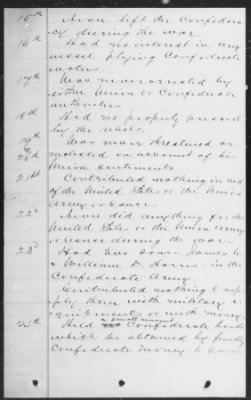 15th Never left the Confedera-
cy during the war.
16th Had no interest in any
vessel plying Confederate
waters.
17th Was never arrested by
either Union or Confederate
authorities.
18th Had no property pressed
by the rebels.
19th Was never threatened or
20th molested on account of his
Union sentiments.
21st Contributed nothing in aid
of the United States or the Union
Army or Cause.
22d Never did anything for the
United States or the Union Army
or Cause during the war.
23d Had two sons James C.
& William D. Harris in the
Confederate Army.
Contributed nothing to sup-
ply them with military e-
quipments or with money.
25th Held a small amount Confederate bonds
which he obtained by funding
Confederate money to